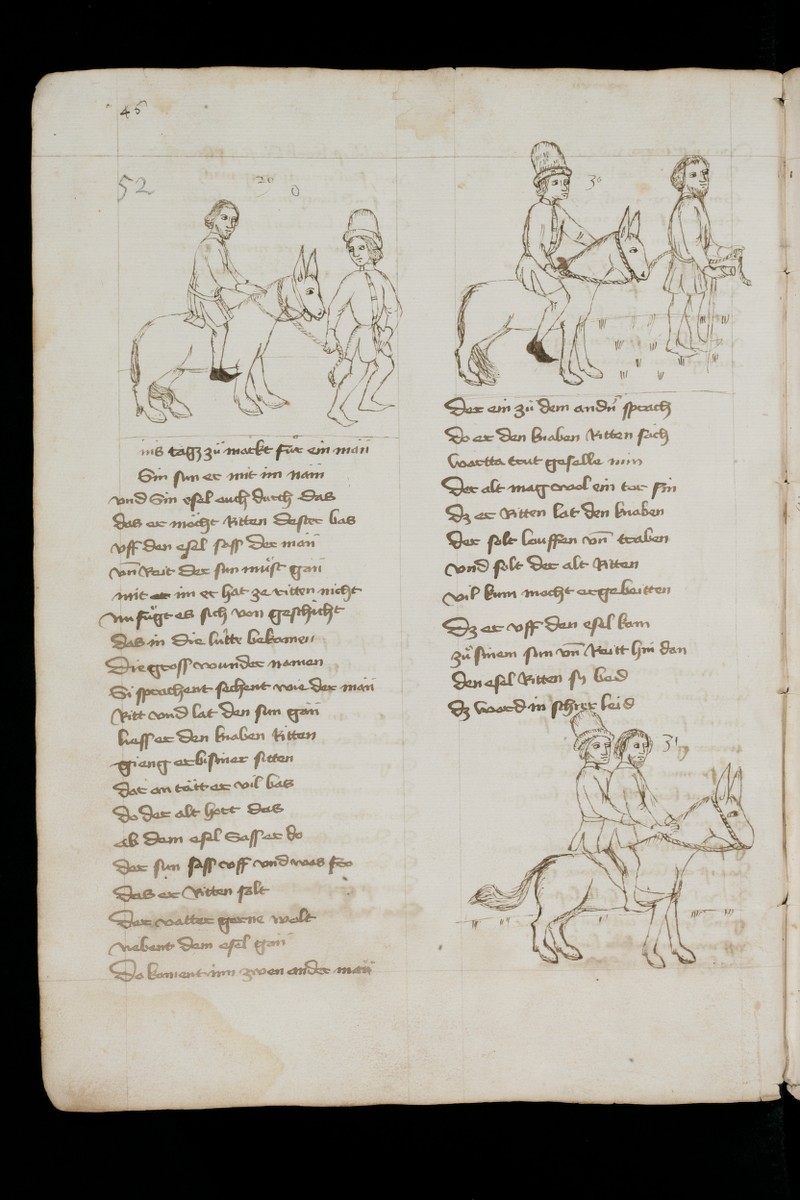 45
52
29
0
ins tags zů markt fůr ein man̄
Sin sun er mit im nam
vnd Sin esel auch durch das
das er möcht Ritten dester bas
vff den esel sass der man̄
vn̄ Reit der sun můst gan̄
mit er im er hat ze ritten nicht
nu fůgt es sich von geschicht
das in die lůtte bekomen
Die gross wounder namen
Si sprachent sechent wie der man̄
Ritt vnd lat den sun gan̄
liess er den knaben Ritten
gieng er bi siner sitten
dar an tätt er vil bas
do der alt hort das
ab dem esel Sass er do
der sun sass vff vnd was fro
das er Ritten solt
Der vatter gerne wolt
nebent dem esel gan̄
Do koment inn zwen ander man̄
30
Der ein zů dem andn̄ sprach
do er den knaben Ritten sach
wartta trut geselle min
Der alt mag wol ein tor sin
Dz er Ritten lat den knaben
der solt louffen vn̄ traben
vnd solt der alt Ritten
vil kum mocht er gebeitten
Dz er vff den esel kam
zů sinem sun vn̄ Reitt hin dan
den esel Ritten sy beid
dz ward in schier leid
31